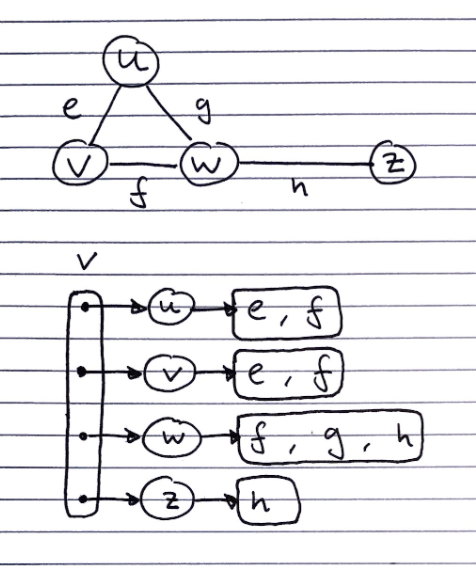 u
e g
v w z
f h
V
u e, f
v e, f
w f, g, h
z h